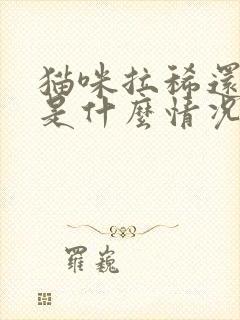 猫咪拉稀還
是什麼情況
羅巍